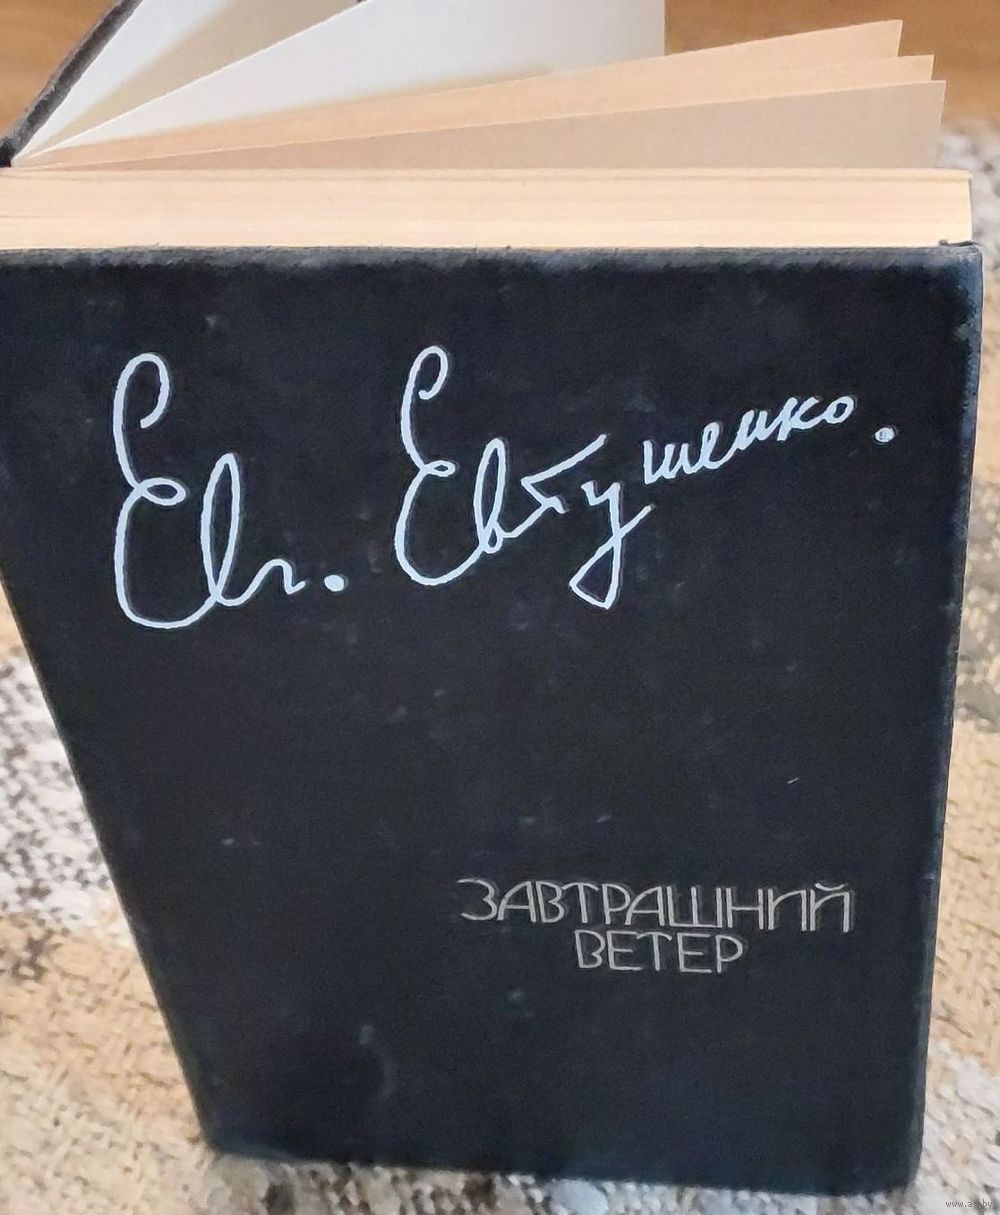 Евг. Евтушенко.
ЗАВТРАШНИЙ
ВЕТЕР